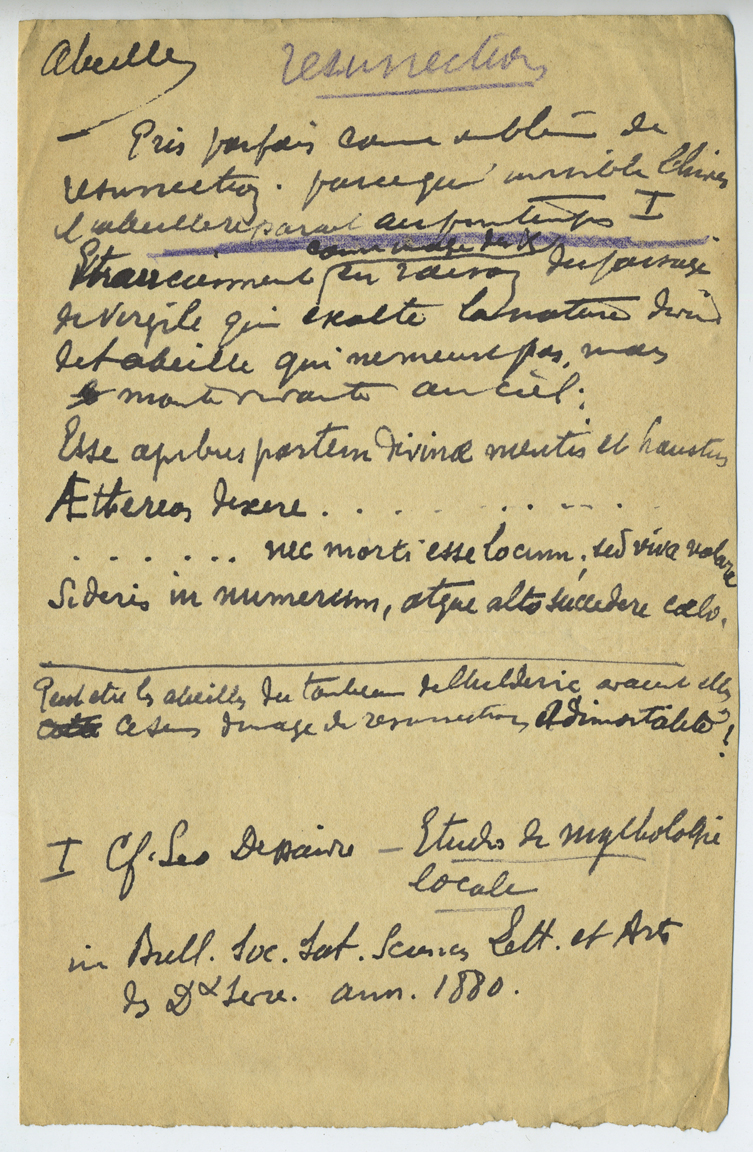 Abeille
resurrection
Pris parfois comme emblème de
resurrection. parcequ' invisible l'hiver
l'abeille reparait au printemps I
Et anciennement
comme image du X
en raison du passage
de Vergile qui exalte la nature divine
de l'abeille qui ne meurt pas, mais
monte vivante au ciel;
Esse apibus partem divinæ mentis et haustus
Æthereos dixere . . . . . . . . .
. . . . . . . nec morti esse locum; sed viva volare
Sideris in numerum, atque alto succedere cœlo.
Peut etre les abeilles du tombeau de Childeric avaient elles
ce sens d'image de resurrection et d'imortalité ?
I Cf. Leo Desaivre – Etudes de mythologie
locale
in Bull. Soc. Stat. Sciences Lett. et Arts
des Dx Sevre. ann. 1880.